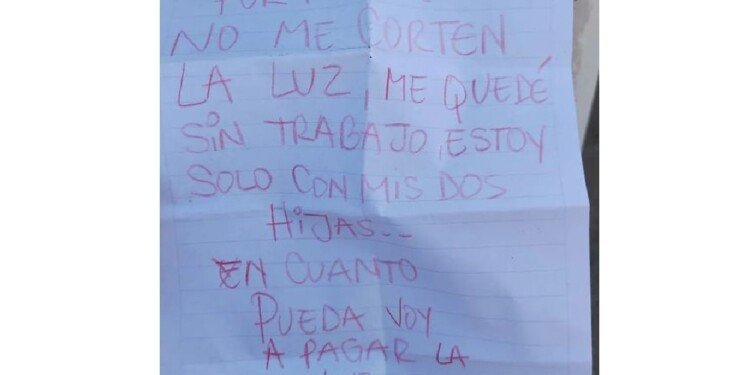 NO ME CORTEN
LA LUZ, ME QUEDÉ
SIN TRABAJO, ESTOY
SOLO CON MIS DOS
HIJAS...
EN CUANTO
PUEDA VOY
A PAGAR LA